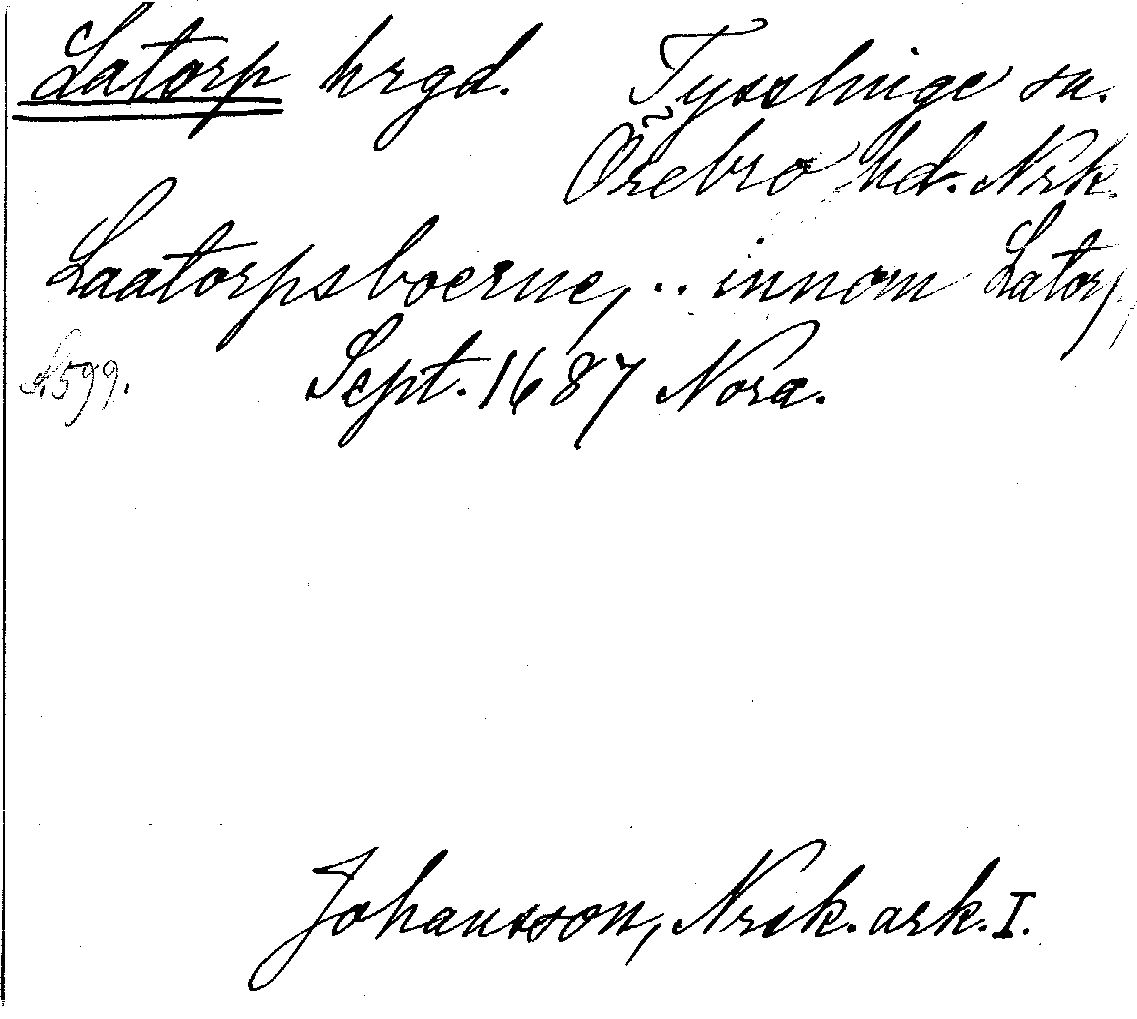 Latorp hrgd. Tysslinge sn.
Örebro hd. Nrk.
Laatorpsboerne, .. innom Latorp
s. 599. Sept. 1687 Nora.
Johansson, Nrsk. ark. I.